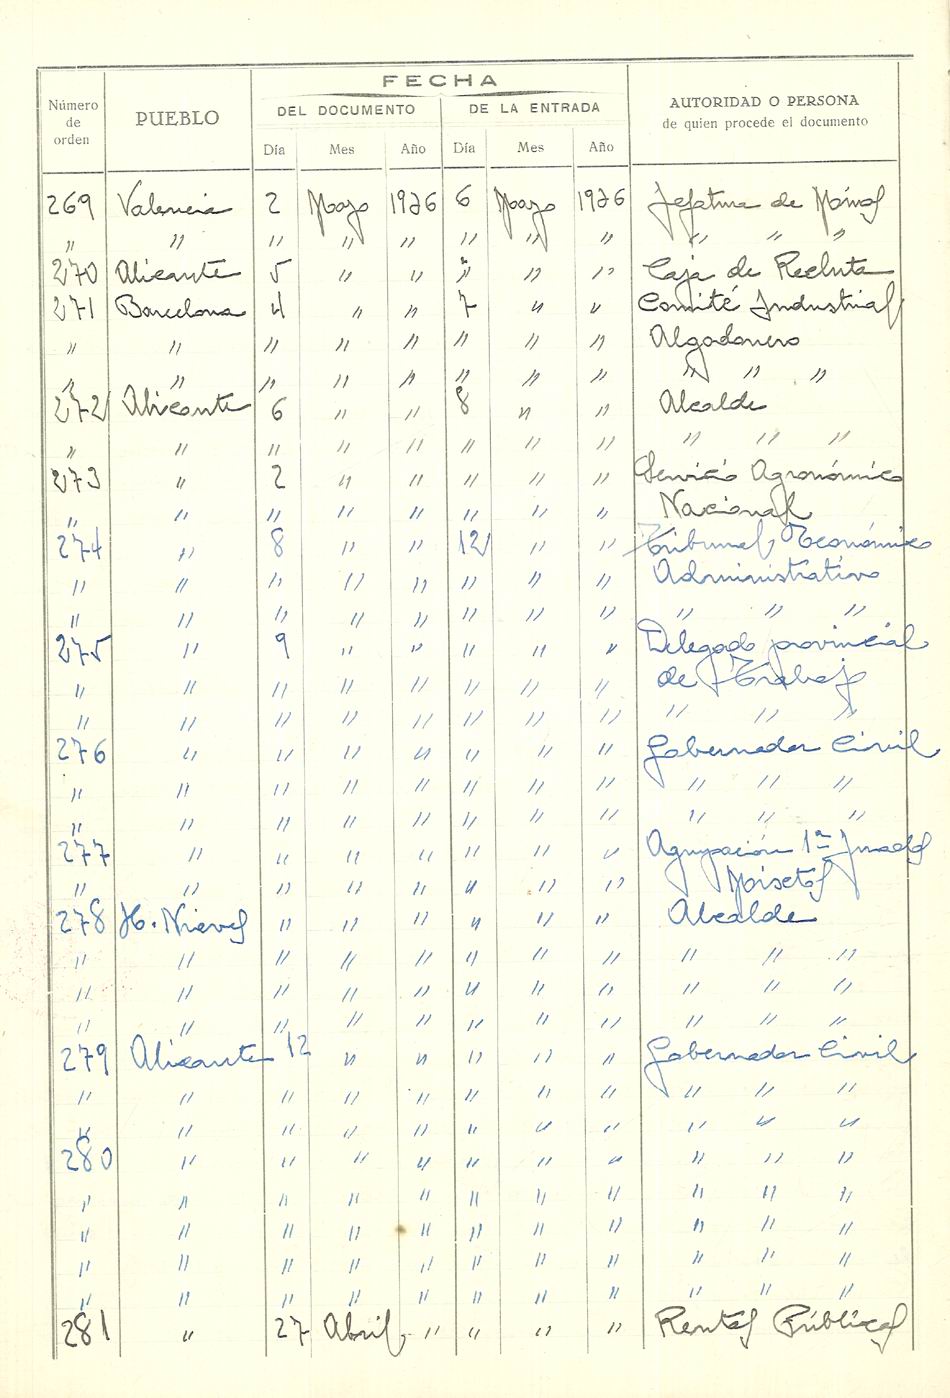 FECHA
Número de orden PUEBLO DEL DOCUMENTO DE LA ENTRADA AUTORIDAD O PERSONA de quien procede el documento
Día Mes Año Día Mes Año
269 Valencia 2 Mayo 1936 6 Mayo 1936 Jefatura de Minas
" " " " " " " " " " "
270 Alicante 5 " " " " " Caja de Recluta
271 Barcelona 4 " " 7 " " Comité Industrial
" " " " " " " " Algodonero
" " " " " " " " " " "
272 Alicante 6 " " 8 " " Alcalde
" " " " " " " " " " "
273 " 2 " " " " " Servicio Agronómico
" " " " " " " " Nacional
274 " 8 " " 12 " " Tribunal Económico
" " " " " " " " Administrativo
" " " " " " " " " " "
275 " 9 " " " " " Delegado provincial
" " " " " " " " de Trabajo
" " " " " " " " " " "
276 " " " " " " " Gobernador Civil
" " " " " " " " " " "
" " " " " " " " " " "
277 " " " " " " " Agrupación 1ª
" " " " " " " "
278 H. Nieves " " " " " " Alcalde
" " " " " " " " " " "
" " " " " " " " " " "
" " " " " " " " " " "
279 Alicante 12 " " " " " Gobernador Civil
" " " " " " " " " " "
" " " " " " " " " " "
280 " " " " " " " " " "
" " " " " " " " " " "
" " " " " " " " " " "
" " " " " " " " " " "
" " " " " " " " " " "
281 " 27 Abril " " " " Rentas Públicas